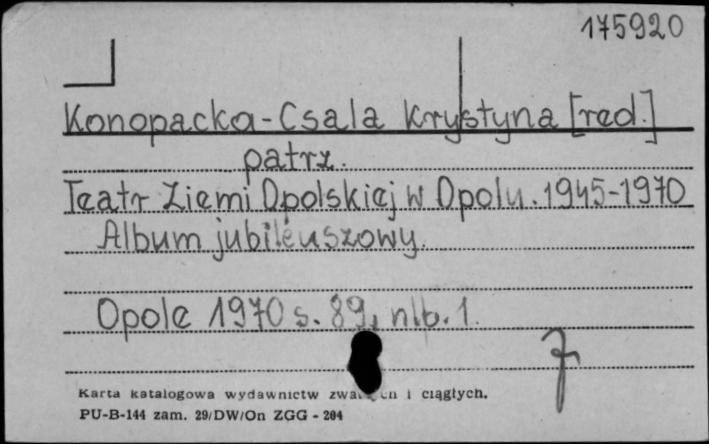 175920
Konopacka-Csala Krystyna [red.]
patrz.
Teatr Ziemi Opolskiej w Opolu. 1945-1970
Album jubileuszowy.
Opole 1970 s. 89, nlb. 1.
Karta katalogowa wydawnictw i ciągłych.
PU-B-144 zam. 29/DW/On ZGG - 204